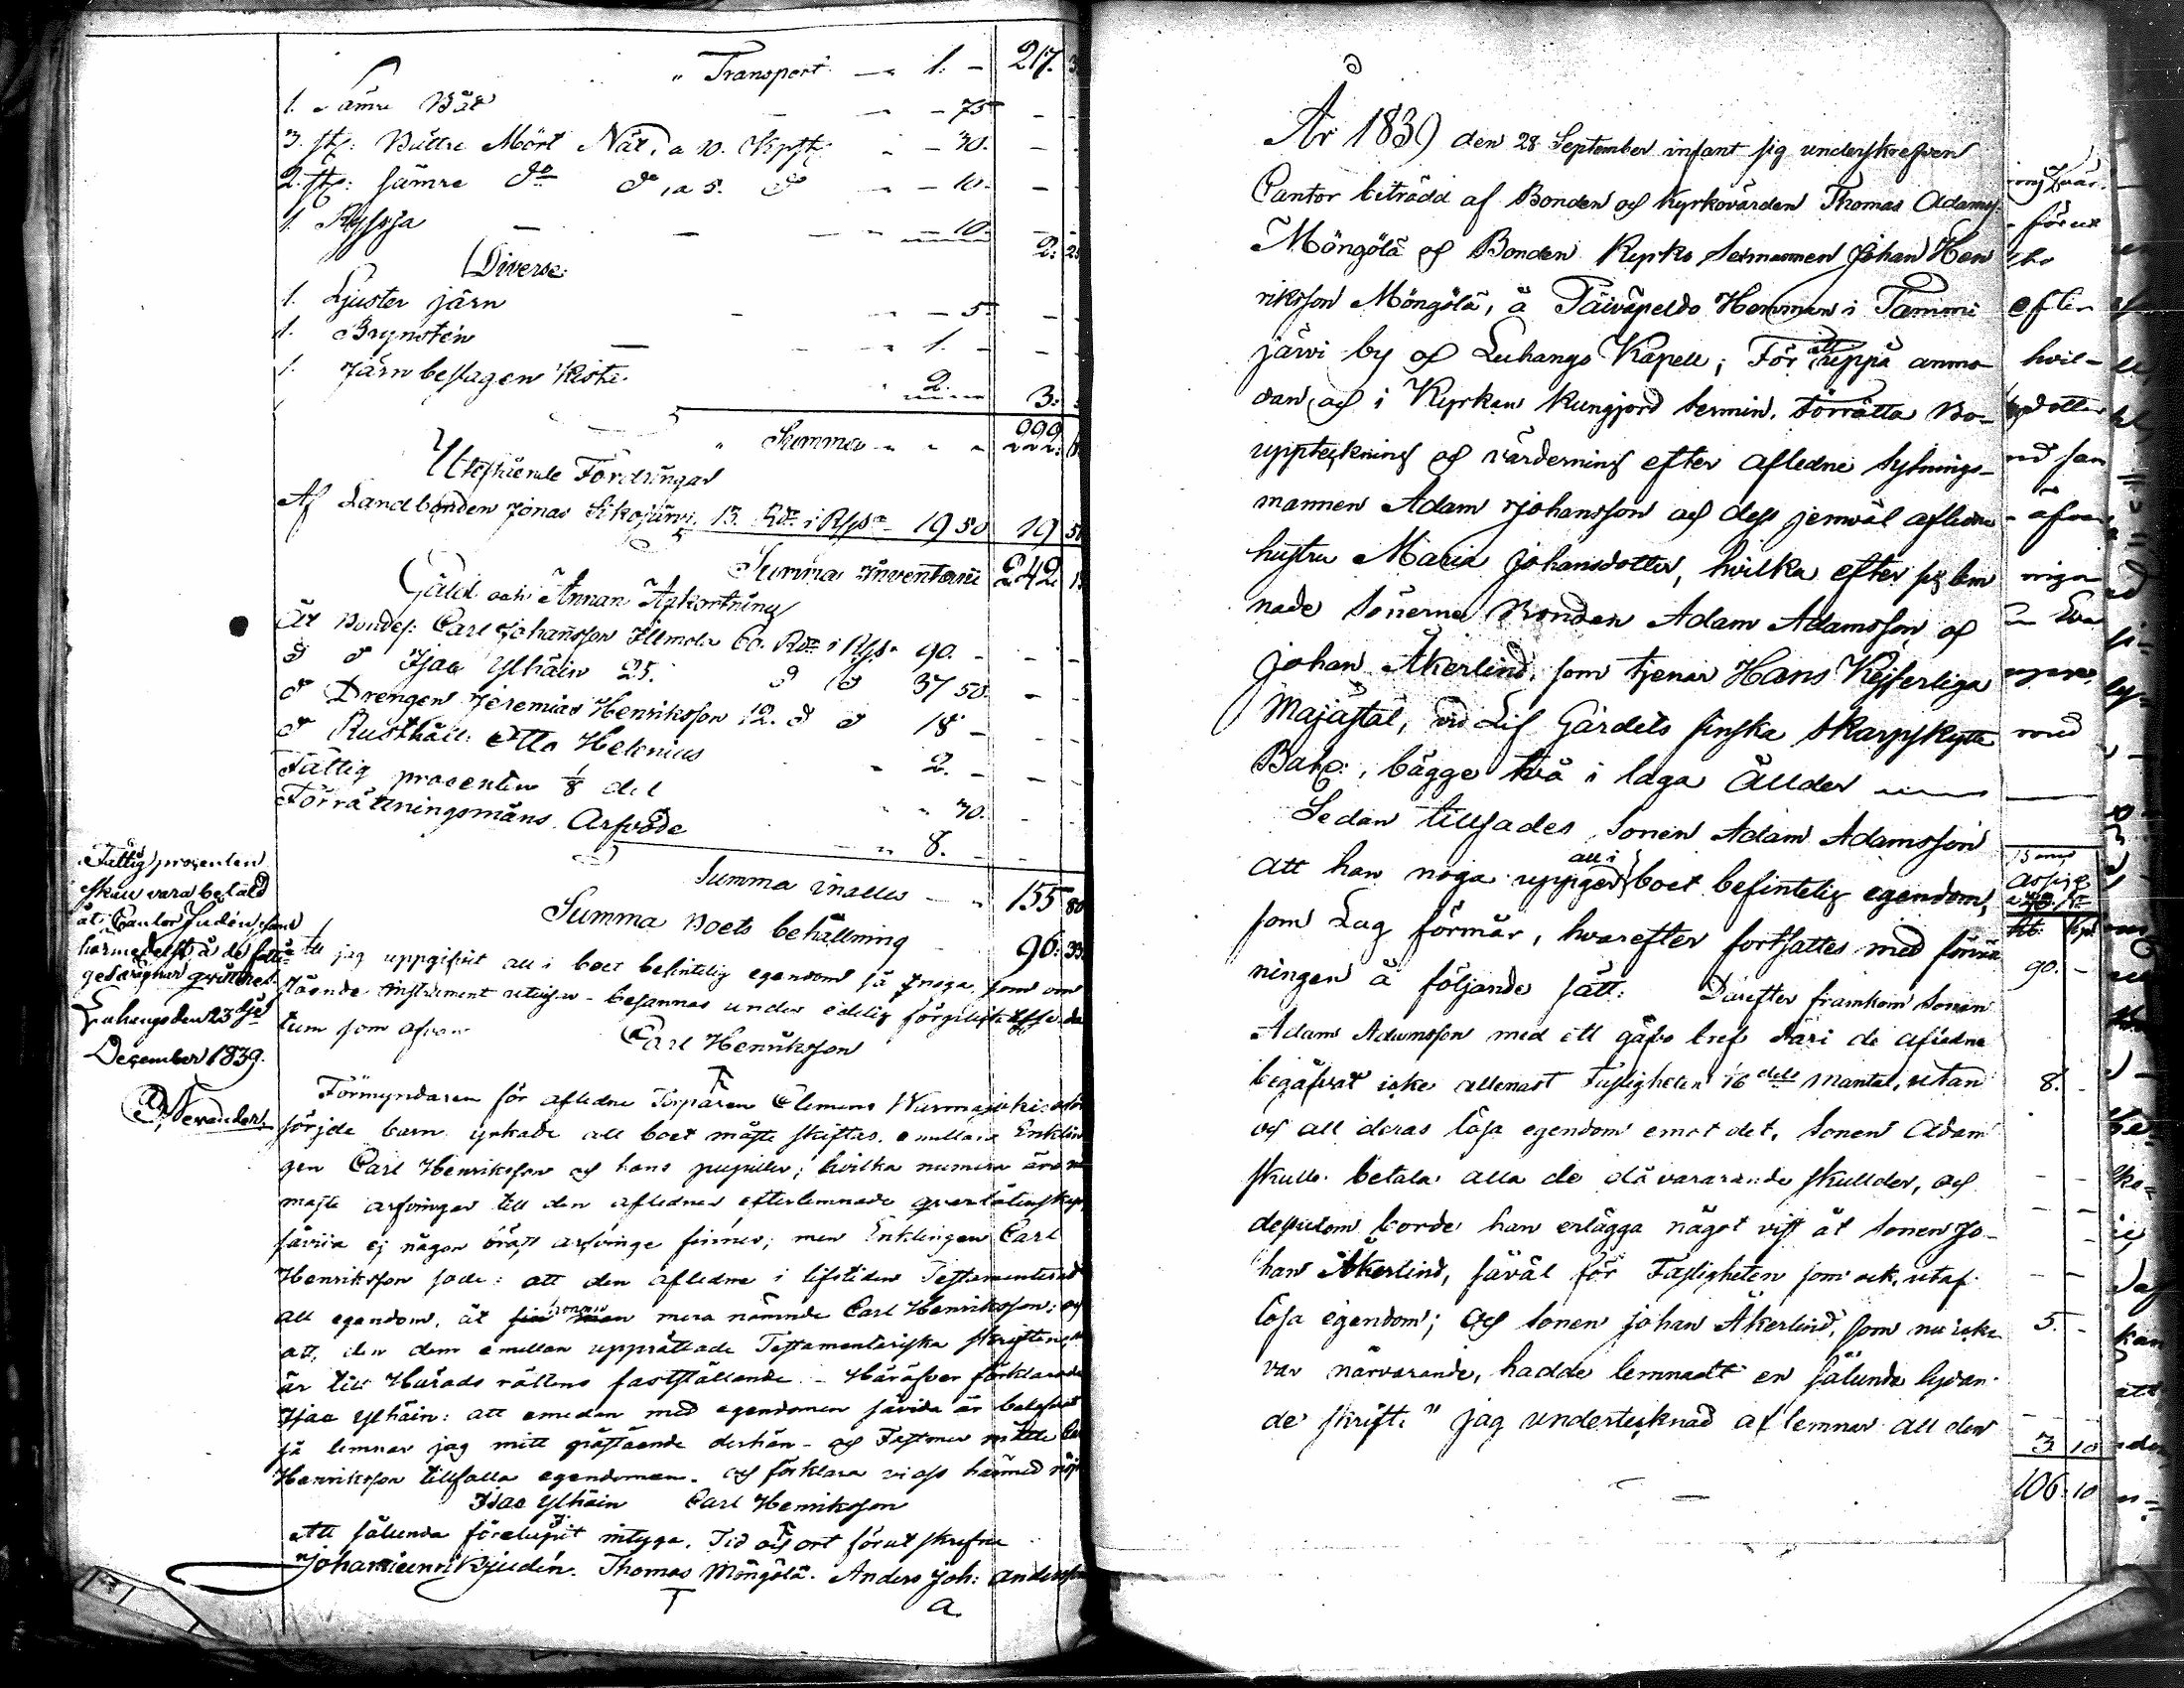 " Transport — " 1. – 217.
1. Sämre Båt – – 75
3. st: Bättre Mört Nät, a 10. Kop st: – 30.
2. st: sämre do do, a 5. do – 10.
1. Ryssja – – 10. 2:
Diverse:
1. Ljuster järn – – 5.
1. Brynsten – 1. –
1. Järn beslagen Kista 2. 3:
" Summa " " " 222:
Utestående Fordringar
Af Landbonden Jonas Sikojärvi, 13. Rd i Rgs 19 50 19 50
Summa Inventarii 242
Gäld och Annan Afkortning
Åt Bondes: Carl Johansson Illmola 60. Rd i Rgs 90. –
do do Isac Ylhäin 25. do do 37 50.
do Drengen Jeremias Henriksson 12. do do 18 –
do Rusthåll: Otto Helenius 2. –
Fattig procenten 1/8 del " 30.
Förrättningsmäns Arfvode – " 8. –
Summa inalles – " 155 80
Summa Boets behållning – 96: 33
Att jag uppgifvit all i boet befintelig egendom så noga, som om
stående Instrument utvisar – besannas under edelig förpligtelse, da
tum som ofvan Carl Henriksson
Fattig procenten
skall vara betald
åt Cantor Judén, som
härmedelst, å de fatti=
gas vägnar qvitteras.
Luhango den 23dje
December 1839.
Förmyndaren för afledne Torparen Clemens Wurmajoki
sörjde barn yrkade att boet måste skiftas emellan Enklin
gen Carl Henriksson och hans pupiller; hvilka numera äro
maste arfvingar till den aflednas efterlemnade qvarlåtenskap,
såvida ej någon bröst arfvinge finnes; men Enklingen Carl
Henriksson sade: att den aflednа i lifstiden Testamenterat
all egendom, åt honom mera nämnde Carl Henriksson; och
att, den dem emellan upprättade Testamentariska skriften,
är till Härads rättens fastställande – Häröfver förklarade
Isac Ylhäin: att emedan med egendomen såvida är belefvat
så lemnar jag mitt påstående derhän – och Testmen måtte
Henriksson tillfalla egendomen. och förklara vi oss härmed nöjd
Isac Ylhäin Carl Henriksson
Att sålunda förelupit intyga. Tid och ort förut skrefne
Johan Henrik Judén. Thomas Möngölä. Anders Joh: Andersson
T a.
År 1839 den 28 September infant sig underskrefven
Cantor biträdd af Bonden och Kyrkovärden Thomas Adamss:
Möngölä och Bonden Kyrko Sexmannen Johan Hen
riksson Möngölä, å Päiväpeldo Hemman i Tammi
järvi by och Luhango Kapell; För att uppå anmo
dan, och i Kyrkan kungjord termin, förrätta Bo-
uppteckning och värdering efter aflednе Sytnings-
mannen Adam Johansson och dess jemväl aflednа
hustru Maria Johansdotter, hvilka efter sig lem
nade Sönerna Bonden Adam Adamsson och
Johan Åkerlind, som tjenar Hans Kejserliga
Majästät, vid Lif Gardets finska Skarpskytte
Bat:, bägge två i laga Ållder
Sedan tillsades Sonen Adam Adamsson
att han noga uppger all i boet befintelig egendom,
som Lag förmår, hvarefter fortsattes med förrätt
ningen å följande sätt: Därefter framkom Sonen
Adam Adamsson med ett gåfvo bref däri de aflednа
begåfvat icke allenast Fastigheten 16 dels Mantal, utan
och all deras lösa egendom emot det, Sonen Adam
skulle betala alla de då vararande skullder, och
dessutom borde han erlägga något visst åt Sonen Jo-
han Åkerlind, såväl för Fastigheten som ock utaf
lösa egendom; och Sonen Johan Åkerlind, som nu icke
var närvarande, hadde lemnadt en sålunda lydan-
de skrift: "Jag undertecknad aflemnar all den
förut
efter
hvil-
dotter
90. –
8. –
5. –
3 10
106: 10